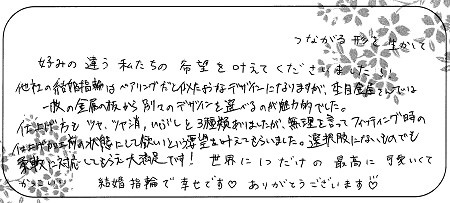 つながる形を生かして
好みの違う私たちの希望を叶えてくださいました!!
他社の結婚指輪はペアリングだと似たようなデザインになりますが、杢目金屋さんでは
一枚の金属の板から別々のデザインを選べるのが魅力的でした。
仕上げ方もツヤ、ツヤ消、いぶしと3種類ありましたが、無理言ってフィッティング時の
仕上げ の状態にして欲しいと要望も叶えてもらいました。選択肢にないものでも
柔軟に対応してもらえ大満足です! 世界に1つだけの最高に可愛いくて
かっこいい 結婚指輪で幸せです♡ ありがとうございます♡